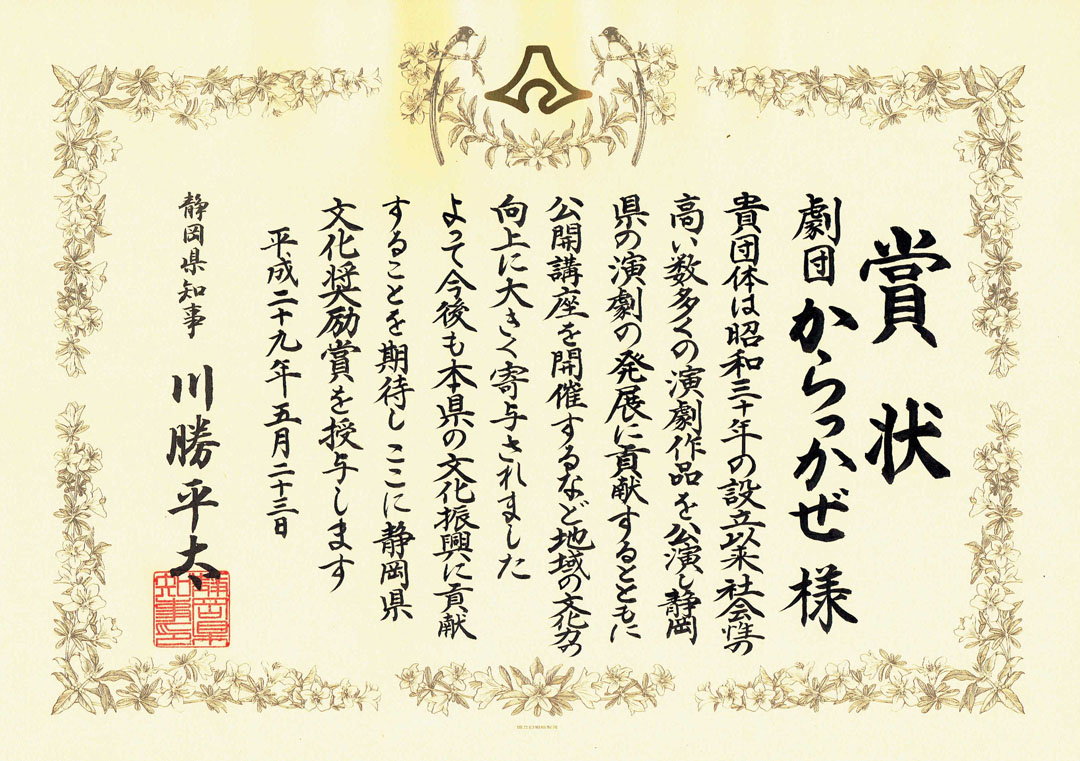 賞状
劇団からっかぜ様
貴団体は昭和三十年の設立以来社会性の
高い数多くの演劇作品を公演し静岡
県の演劇の発展に貢献するとともに
公開講座を開催するなど地域の文化力の
向上に大きく寄与されました
よって今後も本県の文化振興に貢献
することを期待しここに静岡県
文化奨励賞を授与します
平成二十九年五月二十三日
静岡県知事 川勝平太
静岡県
知事印